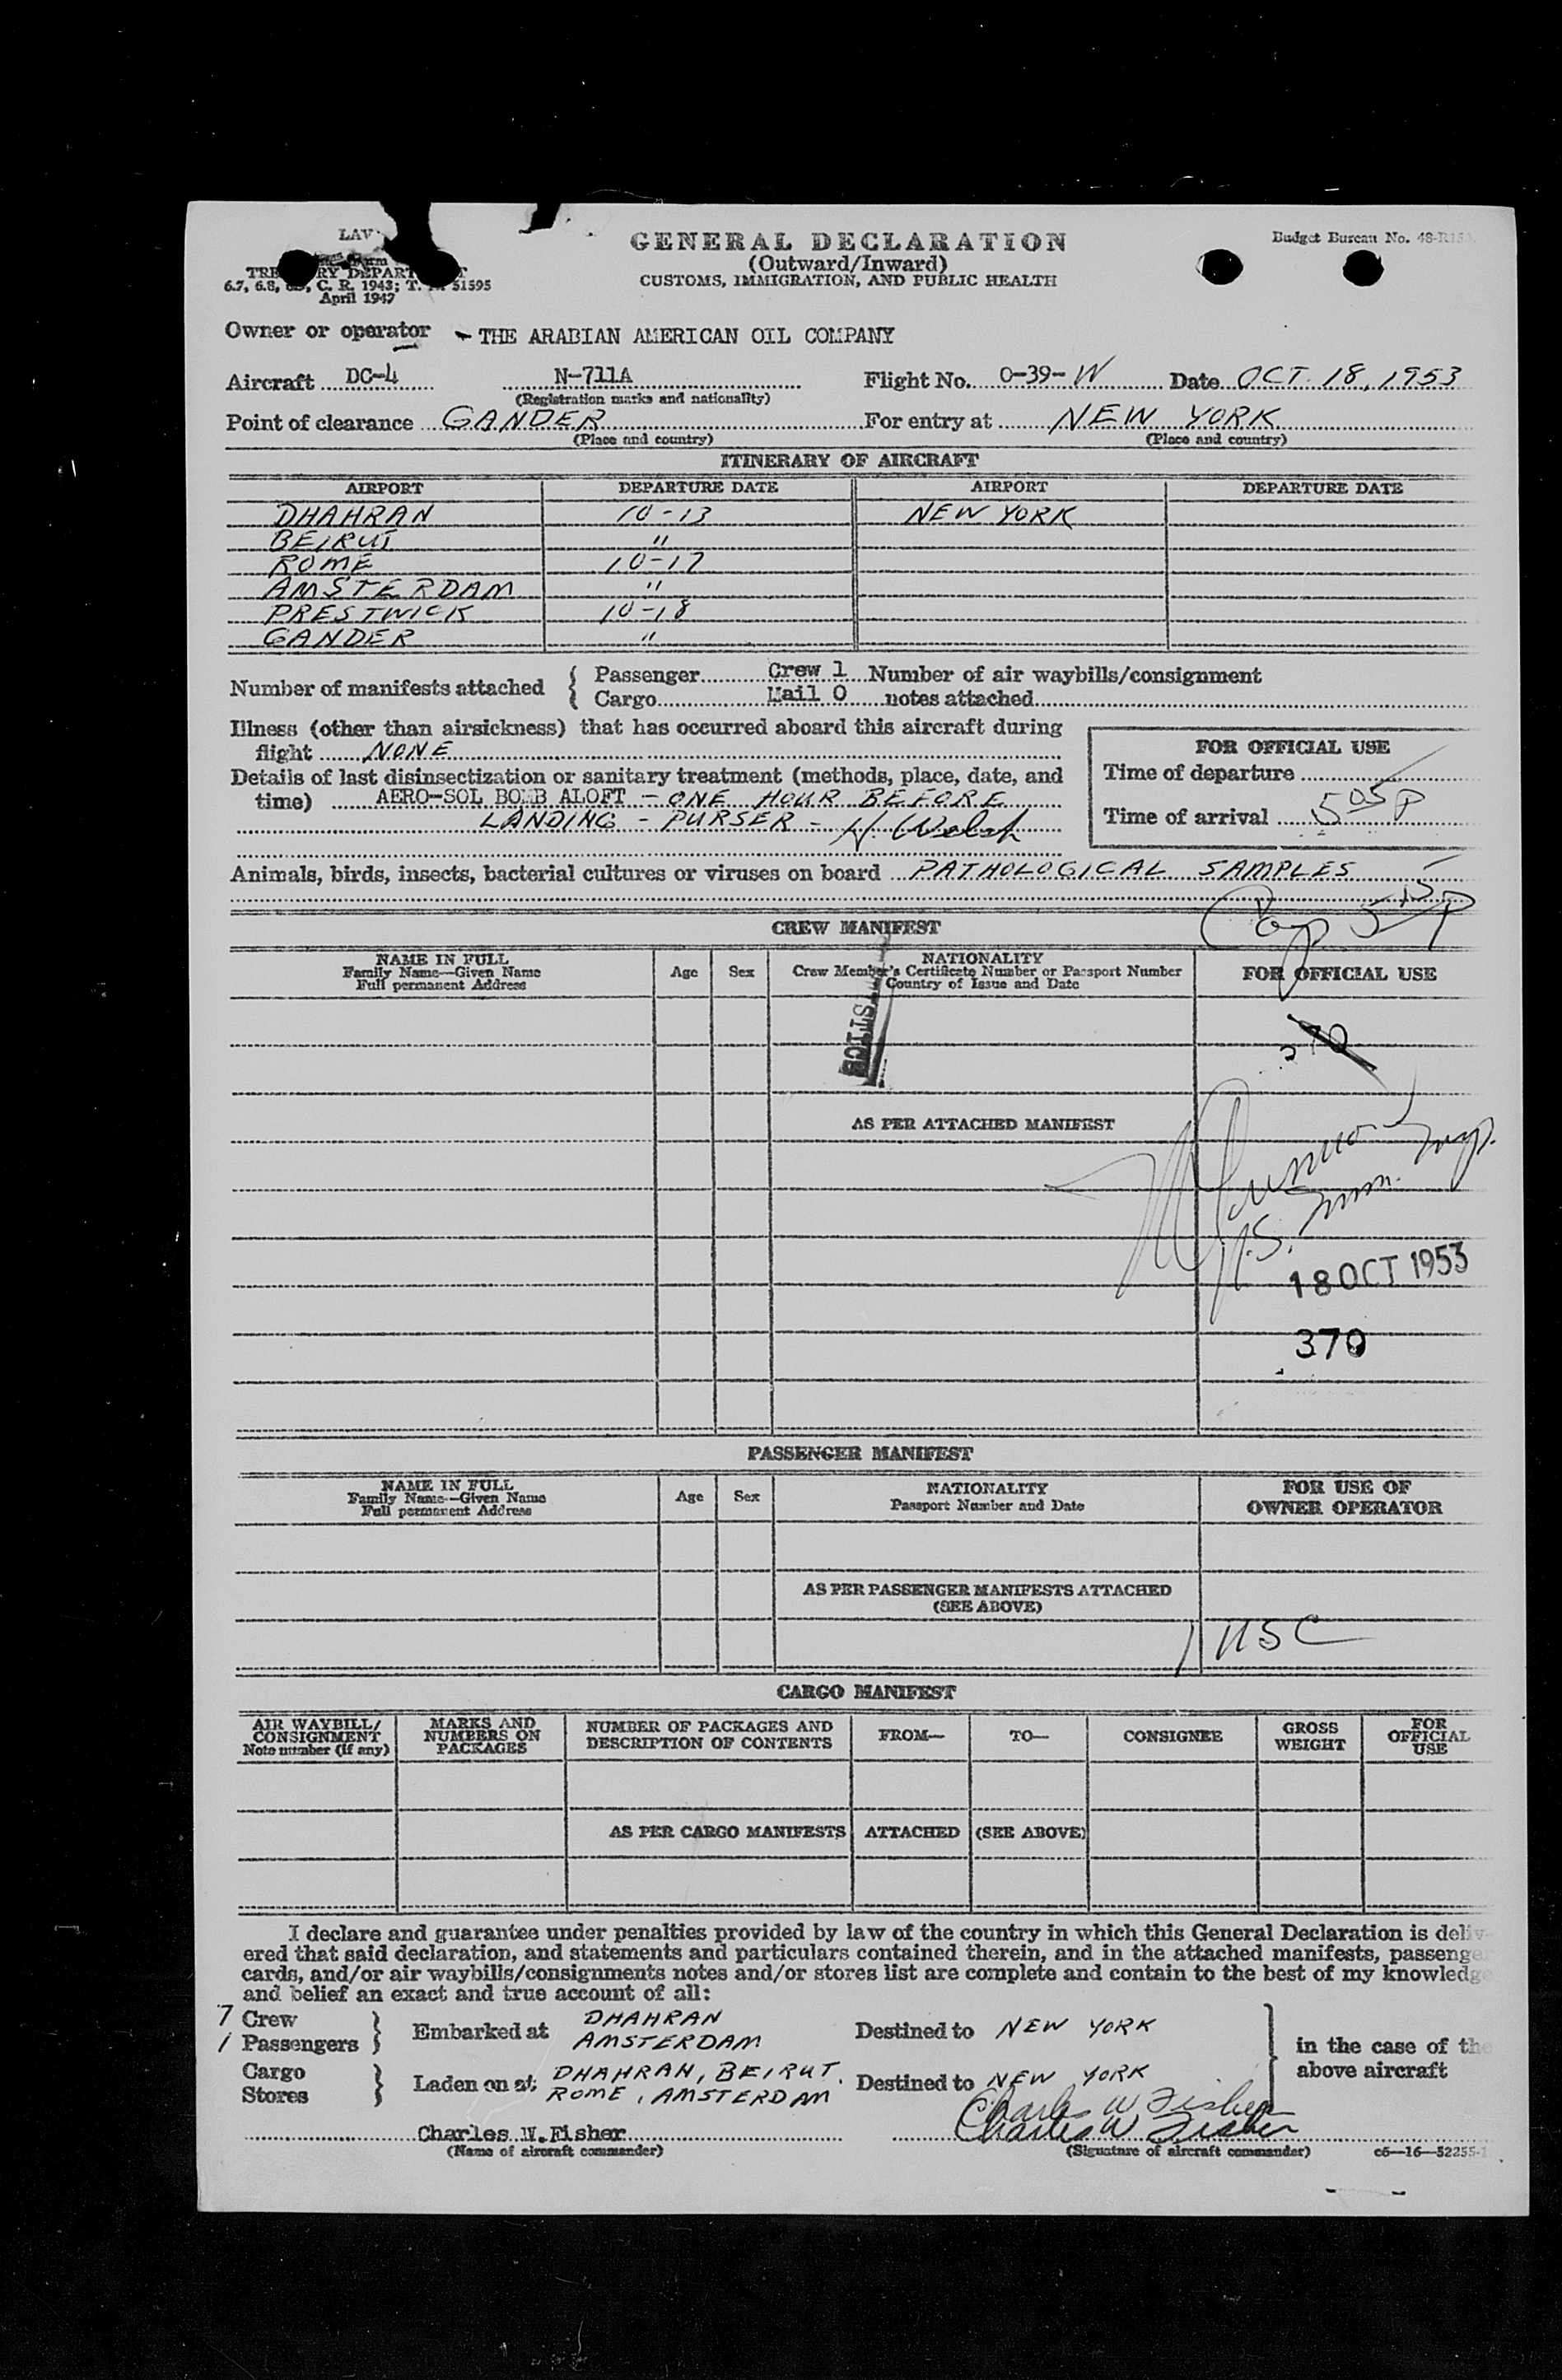 GENERAL DECLARATION
(Outward/Inward)
CUSTOMS, IMMIGRATION, AND PUBLIC HEALTH
Budget Bureau No. 48-
LAV
April 1947
Owner or operator THE ARABIAN AMERICAN OIL COMPANY
Aircraft DC-4 N-711A Flight No. O-39-W Date OCT 18, 1953
(Registration marks and nationality)
Point of clearance GANDER For entry at NEW YORK
(Place and country) (Place and country)
ITINERARY OF AIRCRAFT
AIRPORT DEPARTURE DATE AIRPORT DEPARTURE DATE
DHAHRAN 10-13 NEW YORK
BEIRUT "
ROME 10-17
AMSTERDAM "
PRESTWICK 10-18
GANDER "
Number of manifests attached { Passenger Crew 1 Number of air waybills/consignment
Cargo Mail 0 notes attached
Illness (other than airsickness) that has occurred aboard this aircraft during
flight NONE
Details of last disinsectization or sanitary treatment (methods, place, date, and
time) AERO-SOL BOMB ALOFT - ONE HOUR BEFORE
LANDING - PURSER - H. Welsh
FOR OFFICIAL USE
Time of departure
Time of arrival 5 05 P
Animals, birds, insects, bacterial cultures or viruses on board PATHOLOGICAL SAMPLES
CREW MANIFEST
NAME IN FULL
Family Name—Given Name
Full permanent Address
Age
Sex
NATIONALITY
Crew Member's Certificate Number or Passport Number
Country of Issue and Date
FOR OFFICIAL USE
AS PER ATTACHED MANIFEST
18 OCT 1953
370
PASSENGER MANIFEST
NAME IN FULL
Family Name—Given Name
Full permanent Address
Age
Sex
NATIONALITY
Passport Number and Date
FOR USE OF
OWNER OPERATOR
AS PER PASSENGER MANIFESTS ATTACHED
(SEE ABOVE)
1 USC
CARGO MANIFEST
AIR WAYBILL/
CONSIGNMENT
Note number (if any)
MARKS AND
NUMBERS ON
PACKAGES
NUMBER OF PACKAGES AND
DESCRIPTION OF CONTENTS
FROM—
TO—
CONSIGNEE
GROSS
WEIGHT
FOR
OFFICIAL
USE
AS PER CARGO MANIFESTS ATTACHED (SEE ABOVE)
I declare and guarantee under penalties provided by law of the country in which this General Declaration is deliv-
ered that said declaration, and statements and particulars contained therein, and in the attached manifests, passenge
cards, and/or air waybills/consignments notes and/or stores list are complete and contain to the best of my knowledge
and belief an exact and true account of all:
7 Crew } Embarked at DHAHRAN Destined to NEW YORK
1 Passengers AMSTERDAM
in the case of the
above aircraft
Cargo } Laden on at DHAHRAN, BEIRUT. Destined to NEW YORK
Stores ROME, AMSTERDAM
Charles W Fisher
Charles W. Fisher Charles W Fisher
(Name of aircraft commander) (Signature of aircraft commander) c6—16—52255-1